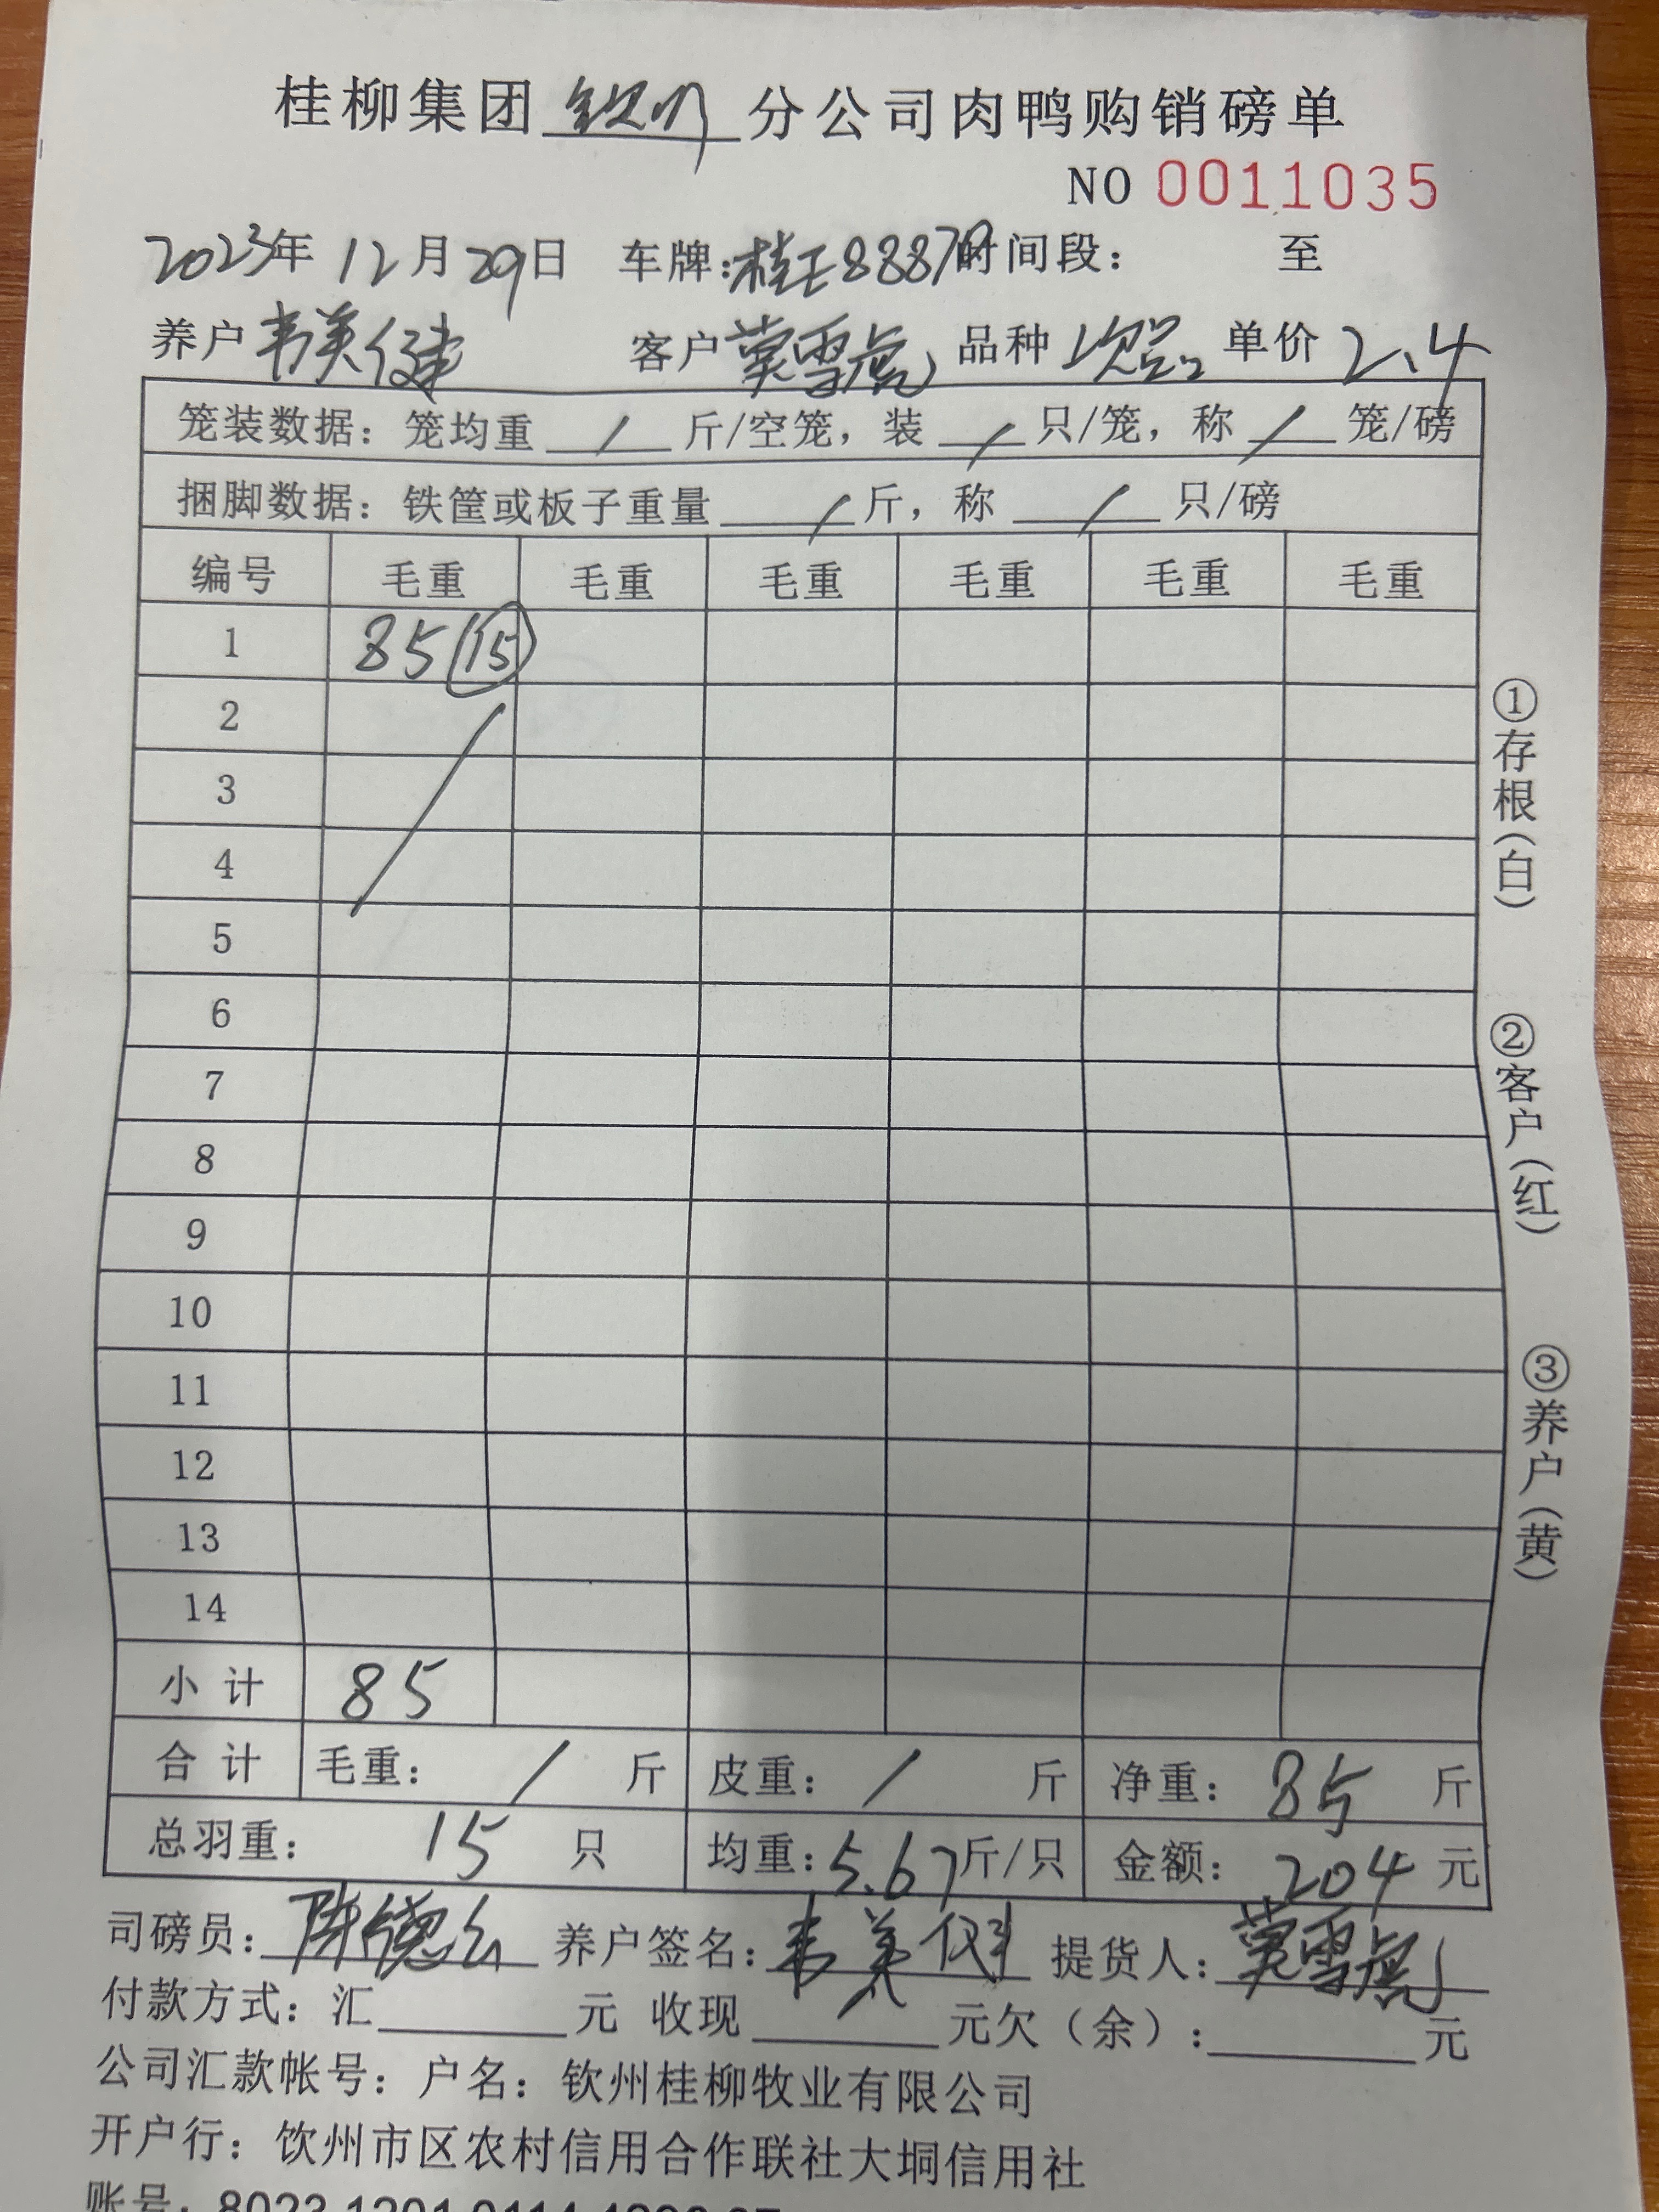 桂柳集团钦州分公司肉鸭购销磅单
NO 0011035
2023年 12月29日 车牌:桂E8887 时间段: 至
养户 韦美健 客户 莫雪虎 品种 次品 单价 2.4
笼装数据: 笼均重 / 斤/空笼, 装 / 只/笼, 称 / 笼/磅
捆脚数据: 铁筐或板子重量 / 斤, 称 / 只/磅
编号 毛重 毛重 毛重 毛重 毛重 毛重
1 85 15
2
3
4
5
6
7
8
9
10
11
12
13
14
小计 85
合计 毛重: / 斤 皮重: / 斤 净重: 85 斤
总羽重: 15 只 均重:5.67斤/只 金额: 204 元
司磅员: 陈德 养户签名: 韦美健 提货人: 莫雪虎
付款方式: 汇 元 收现 元欠(余): 元
公司汇款帐号: 户名: 钦州桂柳牧业有限公司
开户行: 钦州市区农村信用合作联社大垌信用社
账号:
①存根(白)
②客户(红)
③养户(黄)